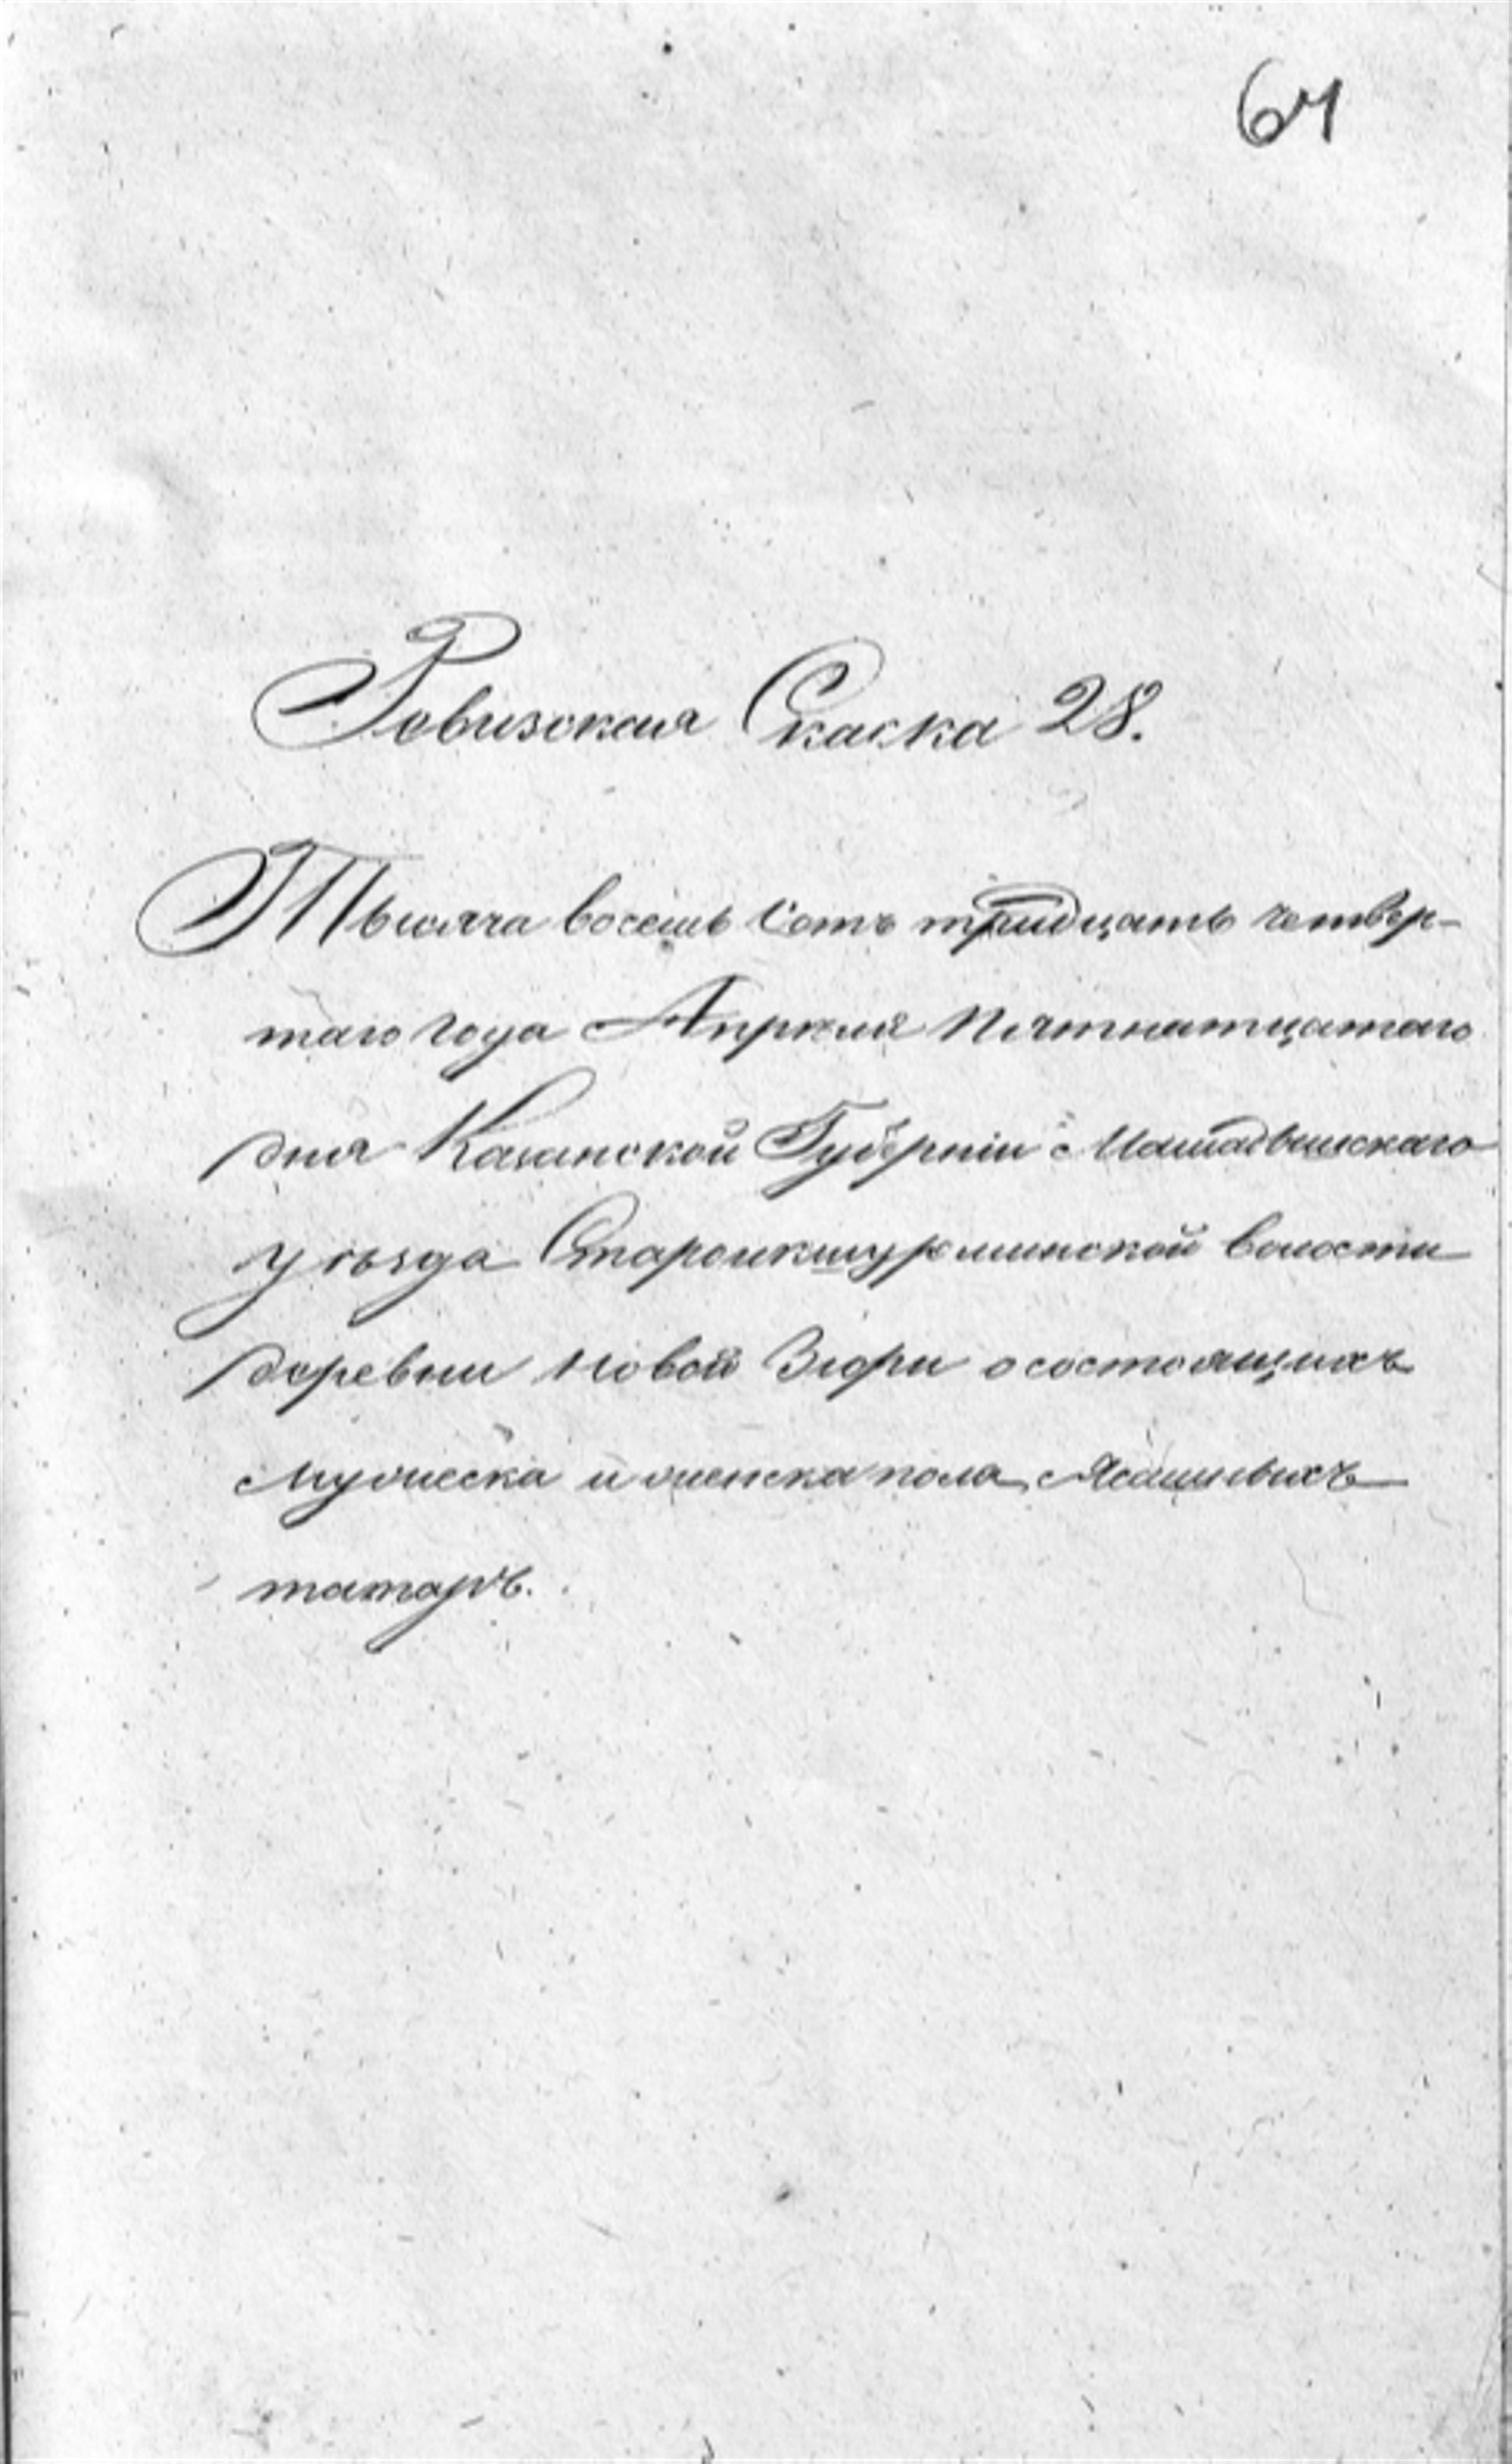 64
Ревизская Скаска 28.
Тысяча восемь Сотъ тридцать четвер-
таго года Апреля Пятнатцатаго
дня Казанской Губерніи Мамадышскаго
уѣзда Староикшурминской волости
деревни Новой Зюри о состоящихъ
мужеска и женска пола Ясашныхъ
татаръ.